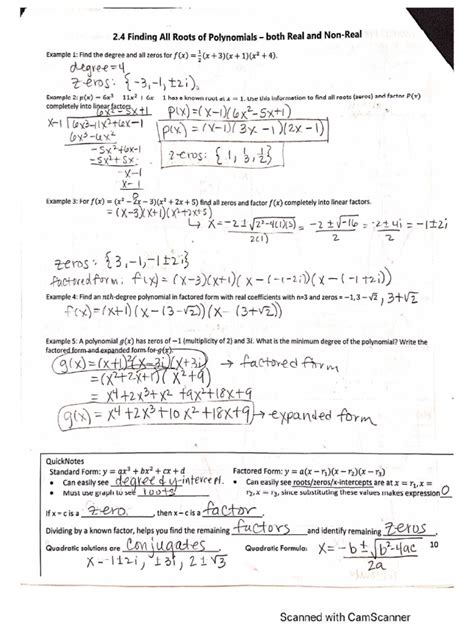 2.4 Finding All Roots of Polynomials – both Real and Non-Real
Example 1: Find the degree and all zeros for f(x) = ½(x + 3)(x + 1)(x² + 4).
degree=4
zeros: {-3, -1, ±2i}.
Example 2: p(x) = 6x³ 11x² + 6x 1 has a known root at x = 1. Use this information to find all roots (zeros) and factor P(x)
completely into linear factors.
6x² -5x+1
P(x)=(x-1)(6x²-5x+1)
x-1 | 6x³-11x²+6x-1
P(x) = (x-1)(3x-1)(2x-1)
6x³-6x²
-5x²+6x-1
-5x²+5x
zeros: {1, ⅓, ½}
x-1
x-1
0
Example 3: For f(x) = (x² – 2x – 3)(x² + 2x + 5) find all zeros and factor f(x) completely into linear factors.
= (x-3)(x+1)(x²+2x+5)
↳ x = -2±√2²-4(1)(5) / 2(1) = -2±√-16 / 2 = -2±4i / 2 = -1±2i
zeros: {3, -1, -1±2i}
factored form: f(x) = (x-3)(x+1)(x-(-1-2i))(x-(-1+2i))
Example 4: Find an nth-degree polynomial in factored form with real coefficients with n=3 and zeros = –1, 3 – √2, 3+√2
f(x)=(x+1)(x-(3-√2))(x-(3+√2))
Example 5: A polynomial g(x) has zeros of –1 (multiplicity of 2) and 3i. What is the minimum degree of the polynomial? Write the
factored form and expanded form for g(x).
g(x)=(x+1)²(x-3i)(x+3i) → factored form
=(x²+2x+1)(x²+9)
= x⁴+2x³+x²+9x²+18x+9
g(x)= x⁴+2x³+10x²+18x+9 → expanded form
QuickNotes
Standard Form: y = ax³ + bx² + cx + d
Factored Form: y = a(x – r₁)(x – r₂)(x – r₃)
• Can easily see degree & y-intercept.
• Can easily see roots/zeros/x-intercepts are at x = r₁, x =
• Must use graph to see roots
r₂, x = r₃, since substituting these values makes expression 0
If x = c is a zero, then x – c is a factor.
Dividing by a known factor, helps you find the remaining factors and identify remaining zeros.
Quadratic solutions are conjugates.
Quadratic Formula: x = -b±√b²-4ac / 2a
10
x=-1±2i, ±3i, 2±√3
Scanned with CamScanner